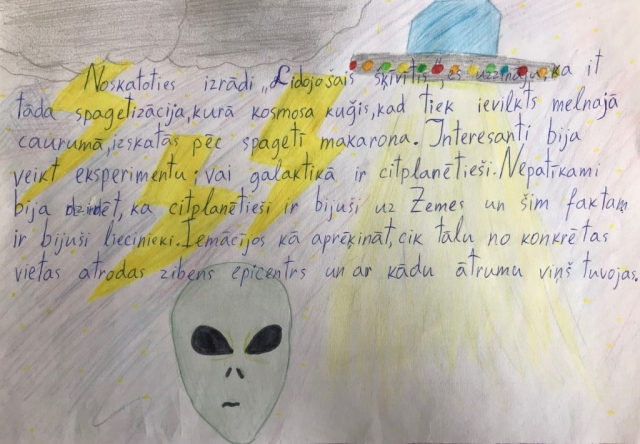 Noskatoties izrādi „Lidojošais šķīvītis", es uzzināju, ka it
tāda spagetizācija, kurā kosmosa kuģis, kad tiek ievilkts melnajā
caurumā, izskatās pēc spageti makarona. Interesanti bija
veikt eksperimentu; vai galaktikā ir citplanētieši. Nepatīkami
bija dzirdēt, ka citplanētieši ir bijuši uz Zemes un šim faktam
ir bijuši liecinieki. Iemācījos kā aprēķināt, cik tālu no konkrētas
vietas atrodas zibens epicentrs un ar kādu ātrumu viņš tuvojas.